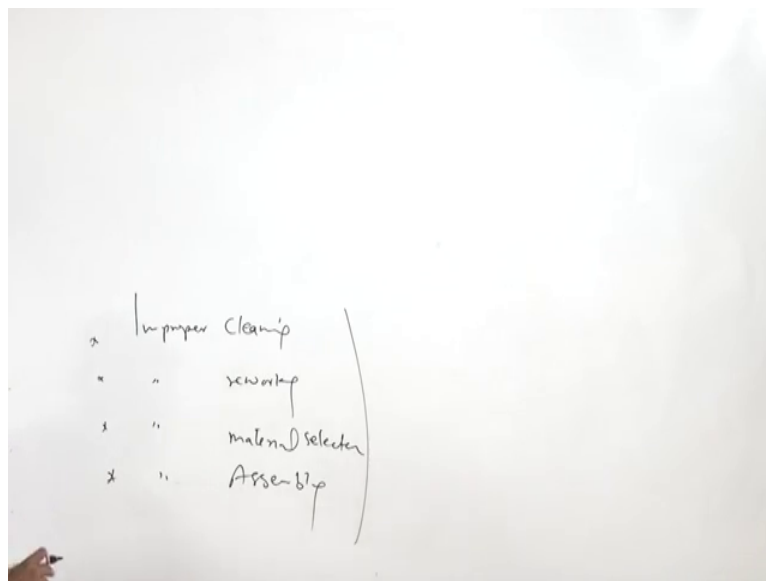 * Improper Cleaning
* " reworking
* " material selection
* " Assembly